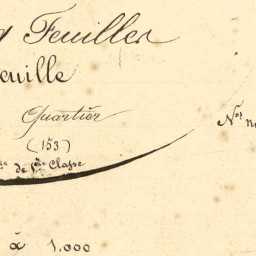 Feuilles
euille
Quartier
N.os
(153)
de 1ère Classe
à 1.000